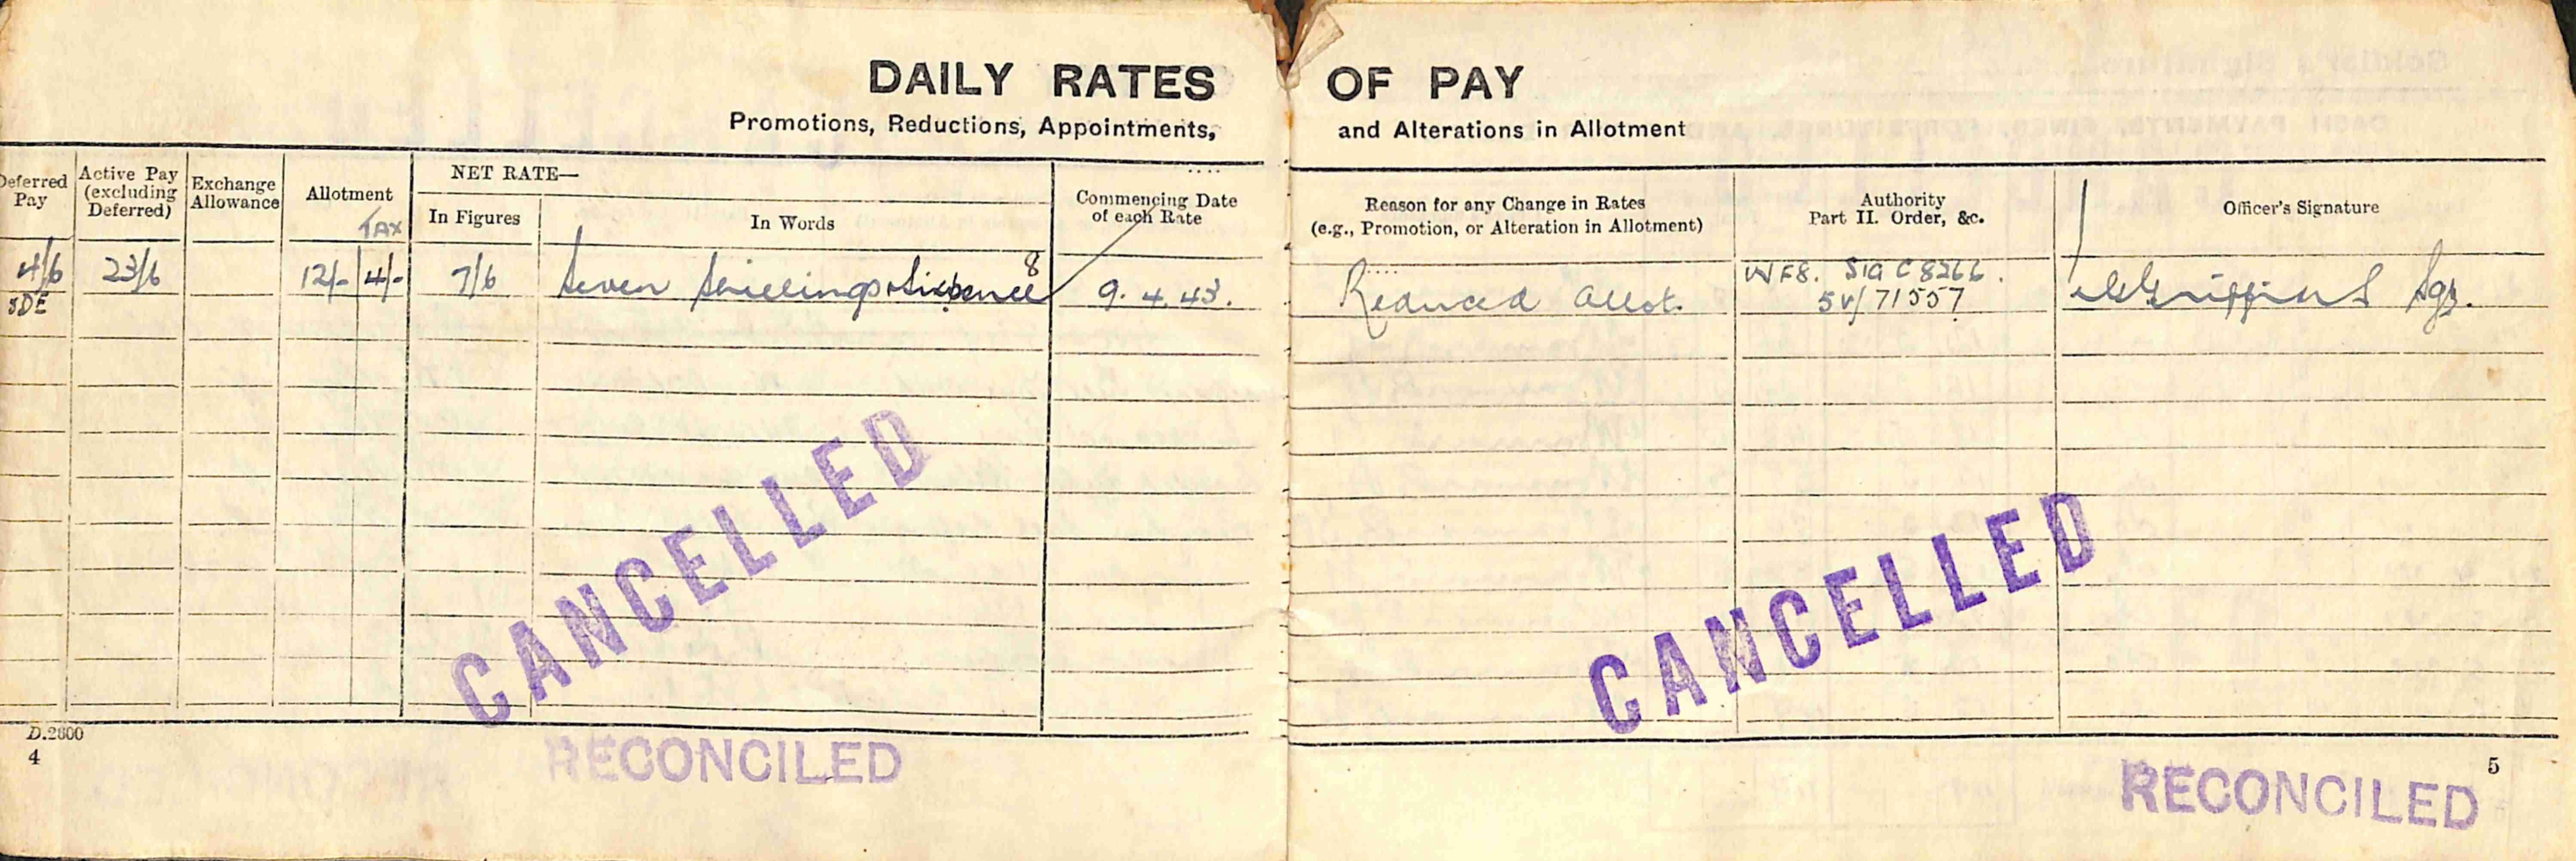 DAILY RATES OF PAY
Promotions, Reductions, Appointments, and Alterations in Allotment
Deferred Pay
Active Pay (excluding Deferred)
Exchange Allowance
Allotment
TAX
NET RATE—
In Figures
In Words
Commencing Date of each Rate
Reason for any Change in Rates (e.g., Promotion, or Alteration in Allotment)
Authority Part II. Order, &c.
Officer's Signature
4/6 23/6 12/- 4/- 7/6 Seven Shillings & Sixpence 8 9.4.43. Reduced Allot. WF8. SIG C8266.
5DE 5V/71557
CANCELLED
CANCELLED
D.2800
4
RECONCILED
5
RECONCILED